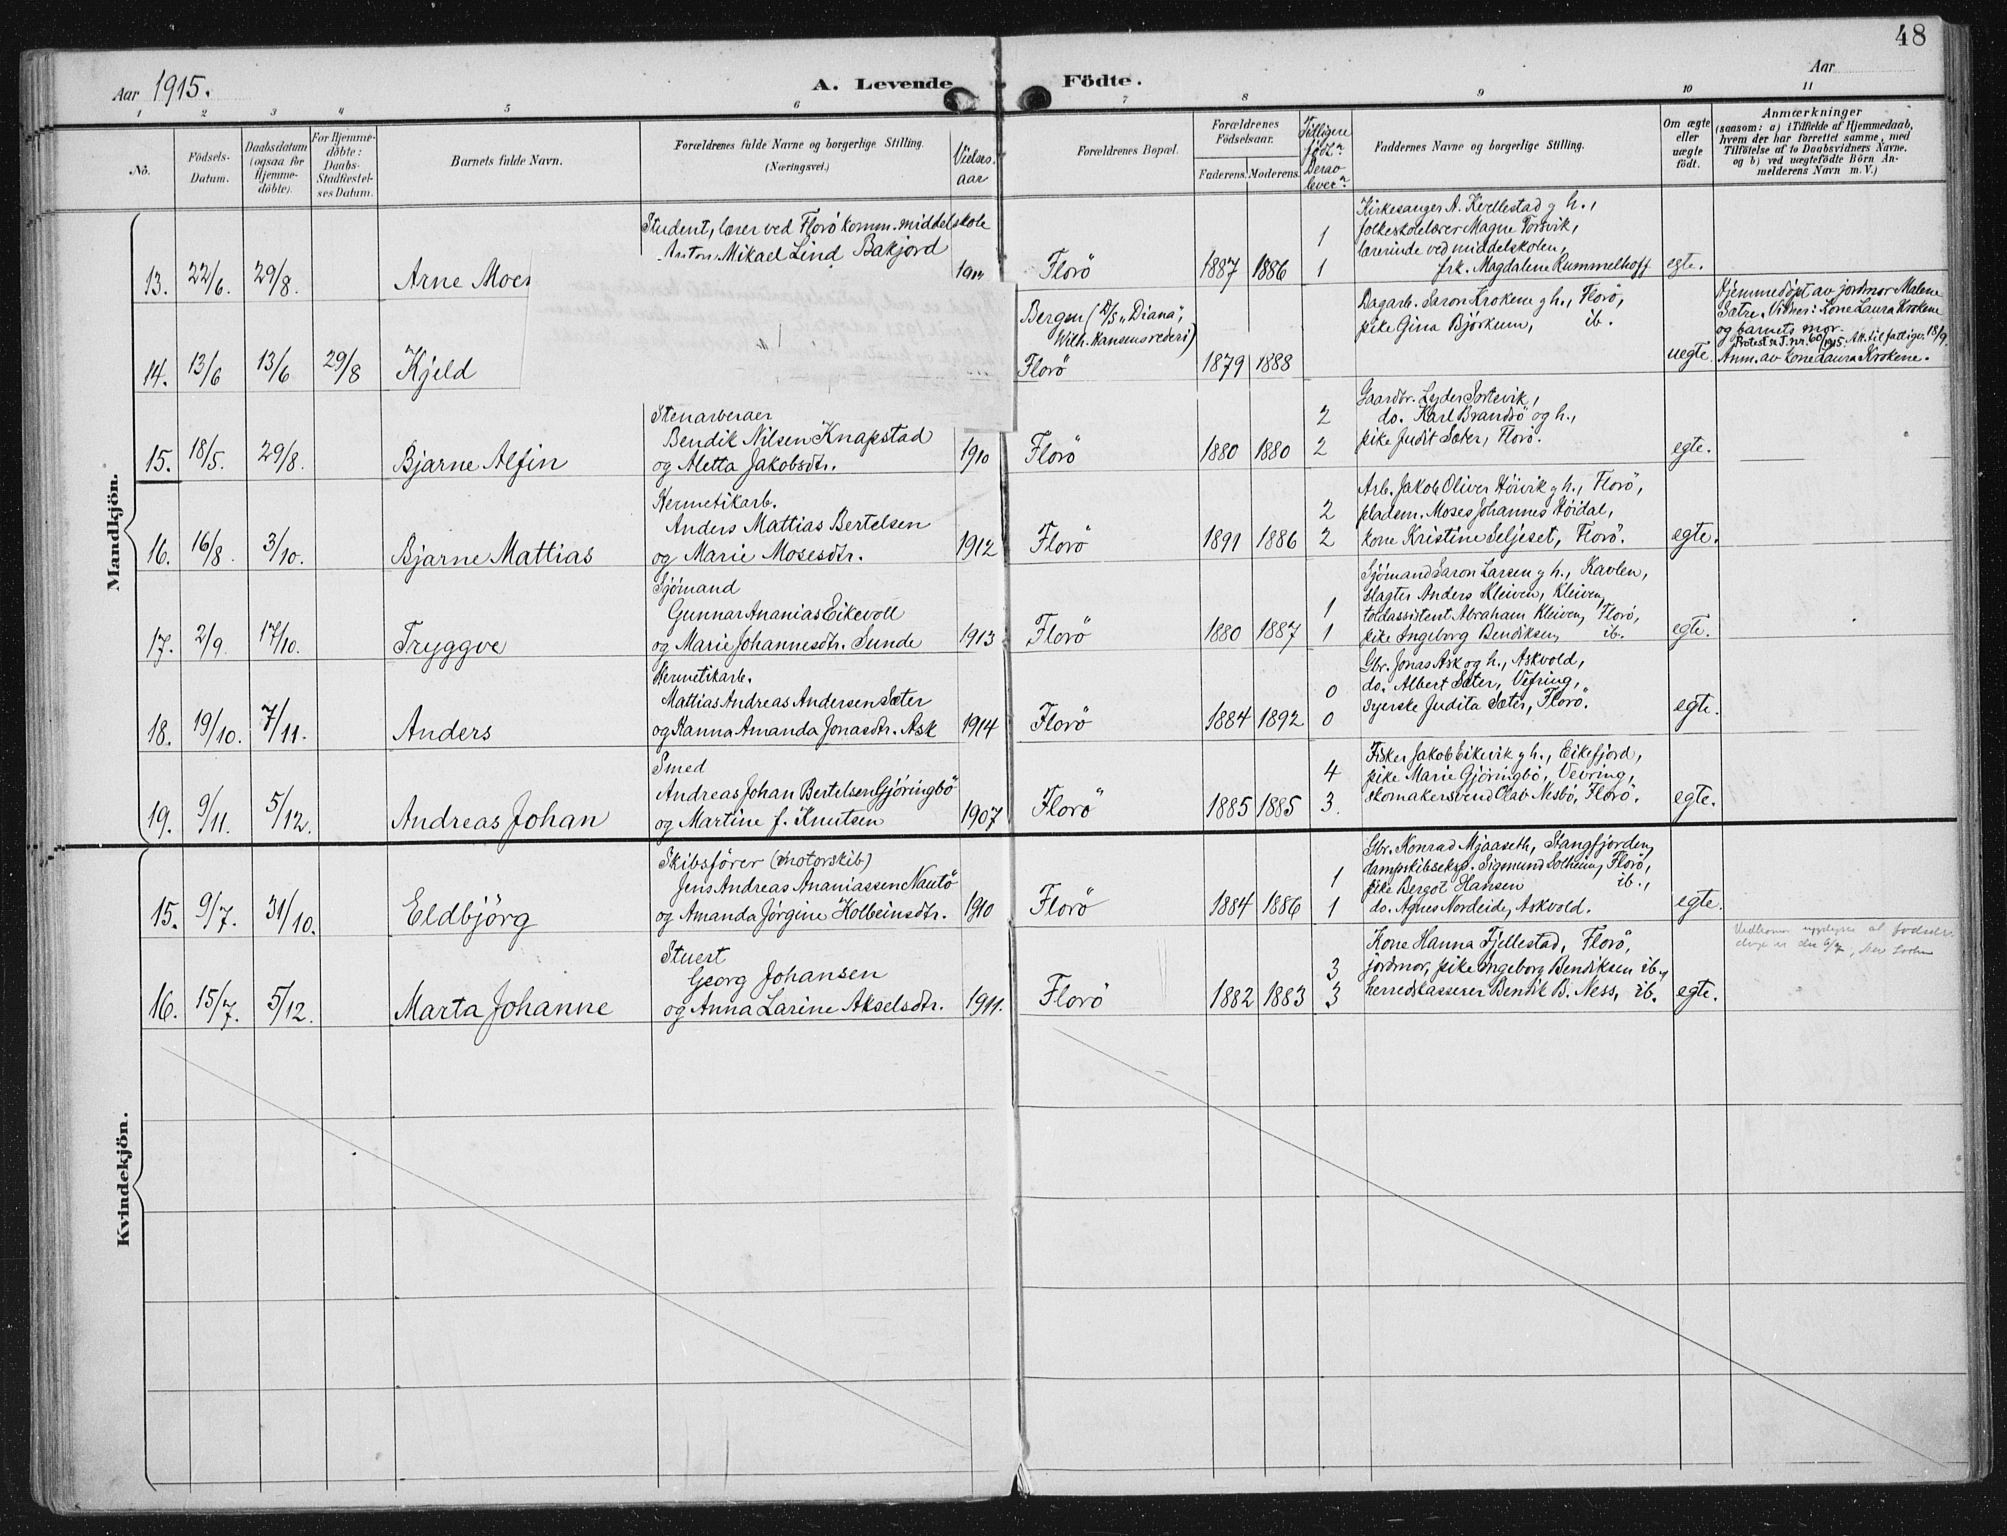 48
Aar 1915.
A. Levende Födte.
Aar
1 2 3 4 5 6 7 8 9 10 11
No.
Födsels-Datum.
Daabsdatum (ogsaa for Hjemme-döbte).
For Hjemme-döbte: Daabs-Stadfæstel-ses Datum.
Barnets fulde Navn.
Forældrenes fulde Navne og borgerlige Stilling.
(Næringsvei.)
Vielses-aar
Forældrenes Bopæl.
Forældrenes Födselsaar.
Faderens. Moderens.
Tidligere födt:
Derav lever:
Faddernes Navne og borgerlige Stilling.
Om ægte eller uægte födt.
Anmærkninger
(saasom: a) i Tilfælde af Hjemmedaab, hvem der har forrettet samme, med Tilföielse af to Daabsvidners Navne. og b) ved uægtefödte Börn Anmelderens Navn m. V.)
Mandkjön.
Student, lærer ved Florö komm. middelskole
Anton Mikael Lind Bakjord
13. 22/6. 29/8. Arne Moe
Florö 1887 1886 1 1
Kirkesanger A. Kvellestad g h.,
folkeskolelærer Magne Torsvik,
lærerinde ved middelskolen,
frk. Magdalene Rummelhoff egte.
14. 13/6 13/6 29/8 Kjeld
Bergen (D/S "Diana",
Wilh. Hansens rederi)
Florö 1879 1888
Dagarb. Saron Krokene g h., Florö,
pike Gina Björkum, ib.
uegte.
Hjemmedöpt av jordmor Malene
Sætre. Vidner: Kone Laura Krokene
og barnets mor.
Protest u. J. nr. 60/1915. Att. til fattigv. 18/9.
Anm. av kone Laura Krokene.
Stenarbeider
Bendik Nilsen Knapstad
15. 18/5. 29/8. Bjarne Alfin og Aletta Jakobsdtr. 1910 Florö 1880 1880 2 2
Gaardbr. Lyder Sortevik,
do. Karl Brandsö og h.,
pike Judit Sæter, Florö.
egte.
Hermetikarb.
Anders Mattias Bertelsen
16. 16/8. 3/10. Bjarne Mattias og Marie Mosesdtr. 1912 Florö 1891 1886 2 2
Arb. Jakob Oliver Höivik g h., Florö,
pladsm. Moses Johannes Höidal,
kone Kristine Seljeset, Florö. egte.
Sjömand
Gunnar Ananias Eikevoll
17. 2/9. 17/10. Tryggve og Marie Johannesdtr. Sunde 1913 Florö 1880 1887 1 1
Sjömand Saron Larsen g h., Kavlen,
slagter Anders Kleiven, Kleiven,
toldassistent Abraham Kleiven, Florö,
pike Ingeborg Bendiksen, ib. egte.
Hermetikarb.
Mattias Andreas Andersen Sæter
18. 19/10. 7/11. Anders og Hanna Amanda Jonasdtr. Ask 1914 Florö 1884 1892 0 0
Gbr. Jonas Ask og h., Askvold,
do. Albert Sæter, Vefring,
syerske Judita Sæter, Florö. egte.
Smed
Andreas Johan Bertelsen Gjöringbö
19. 9/11. 5/12. Andreas Johan og Martine f. Knutsen 1907 Florö 1885 1885 4 3.
Fisker Jakob Eikevik g h., Eikefjord,
pike Marie Gjöringbö, Vevring,
skomakersvend Olav Nesbö, Florö. egte.
Kvindekjön.
Skibsförer (motorskib)
Jens Andreas Ananiassen Nautö
15. 9/7. 31/10. Eldbjörg og Amanda Jörgine Kolbeinsdtr. 1910 Florö 1884 1886 1 1
Gbr. Konrad Mjaaseth, Stangfjorden,
dampskibseksp. Sigmund Solheim, Florö,
pike Bergot Hansen ib.,
do. Agnes Nordeide, Askvold. egte.
Stuert
Georg Johansen
16. 15/7. 5/12. Marta Johanne og Anna Larine Akselsdtr. 1911. Florö 1882 1883 3 3
Kone Hanna Fjellestad, Florö,
jordmor, pike Ingeborg Bendiksen ib.,
herredskasserer Bendik B. Ness, ib. egte.